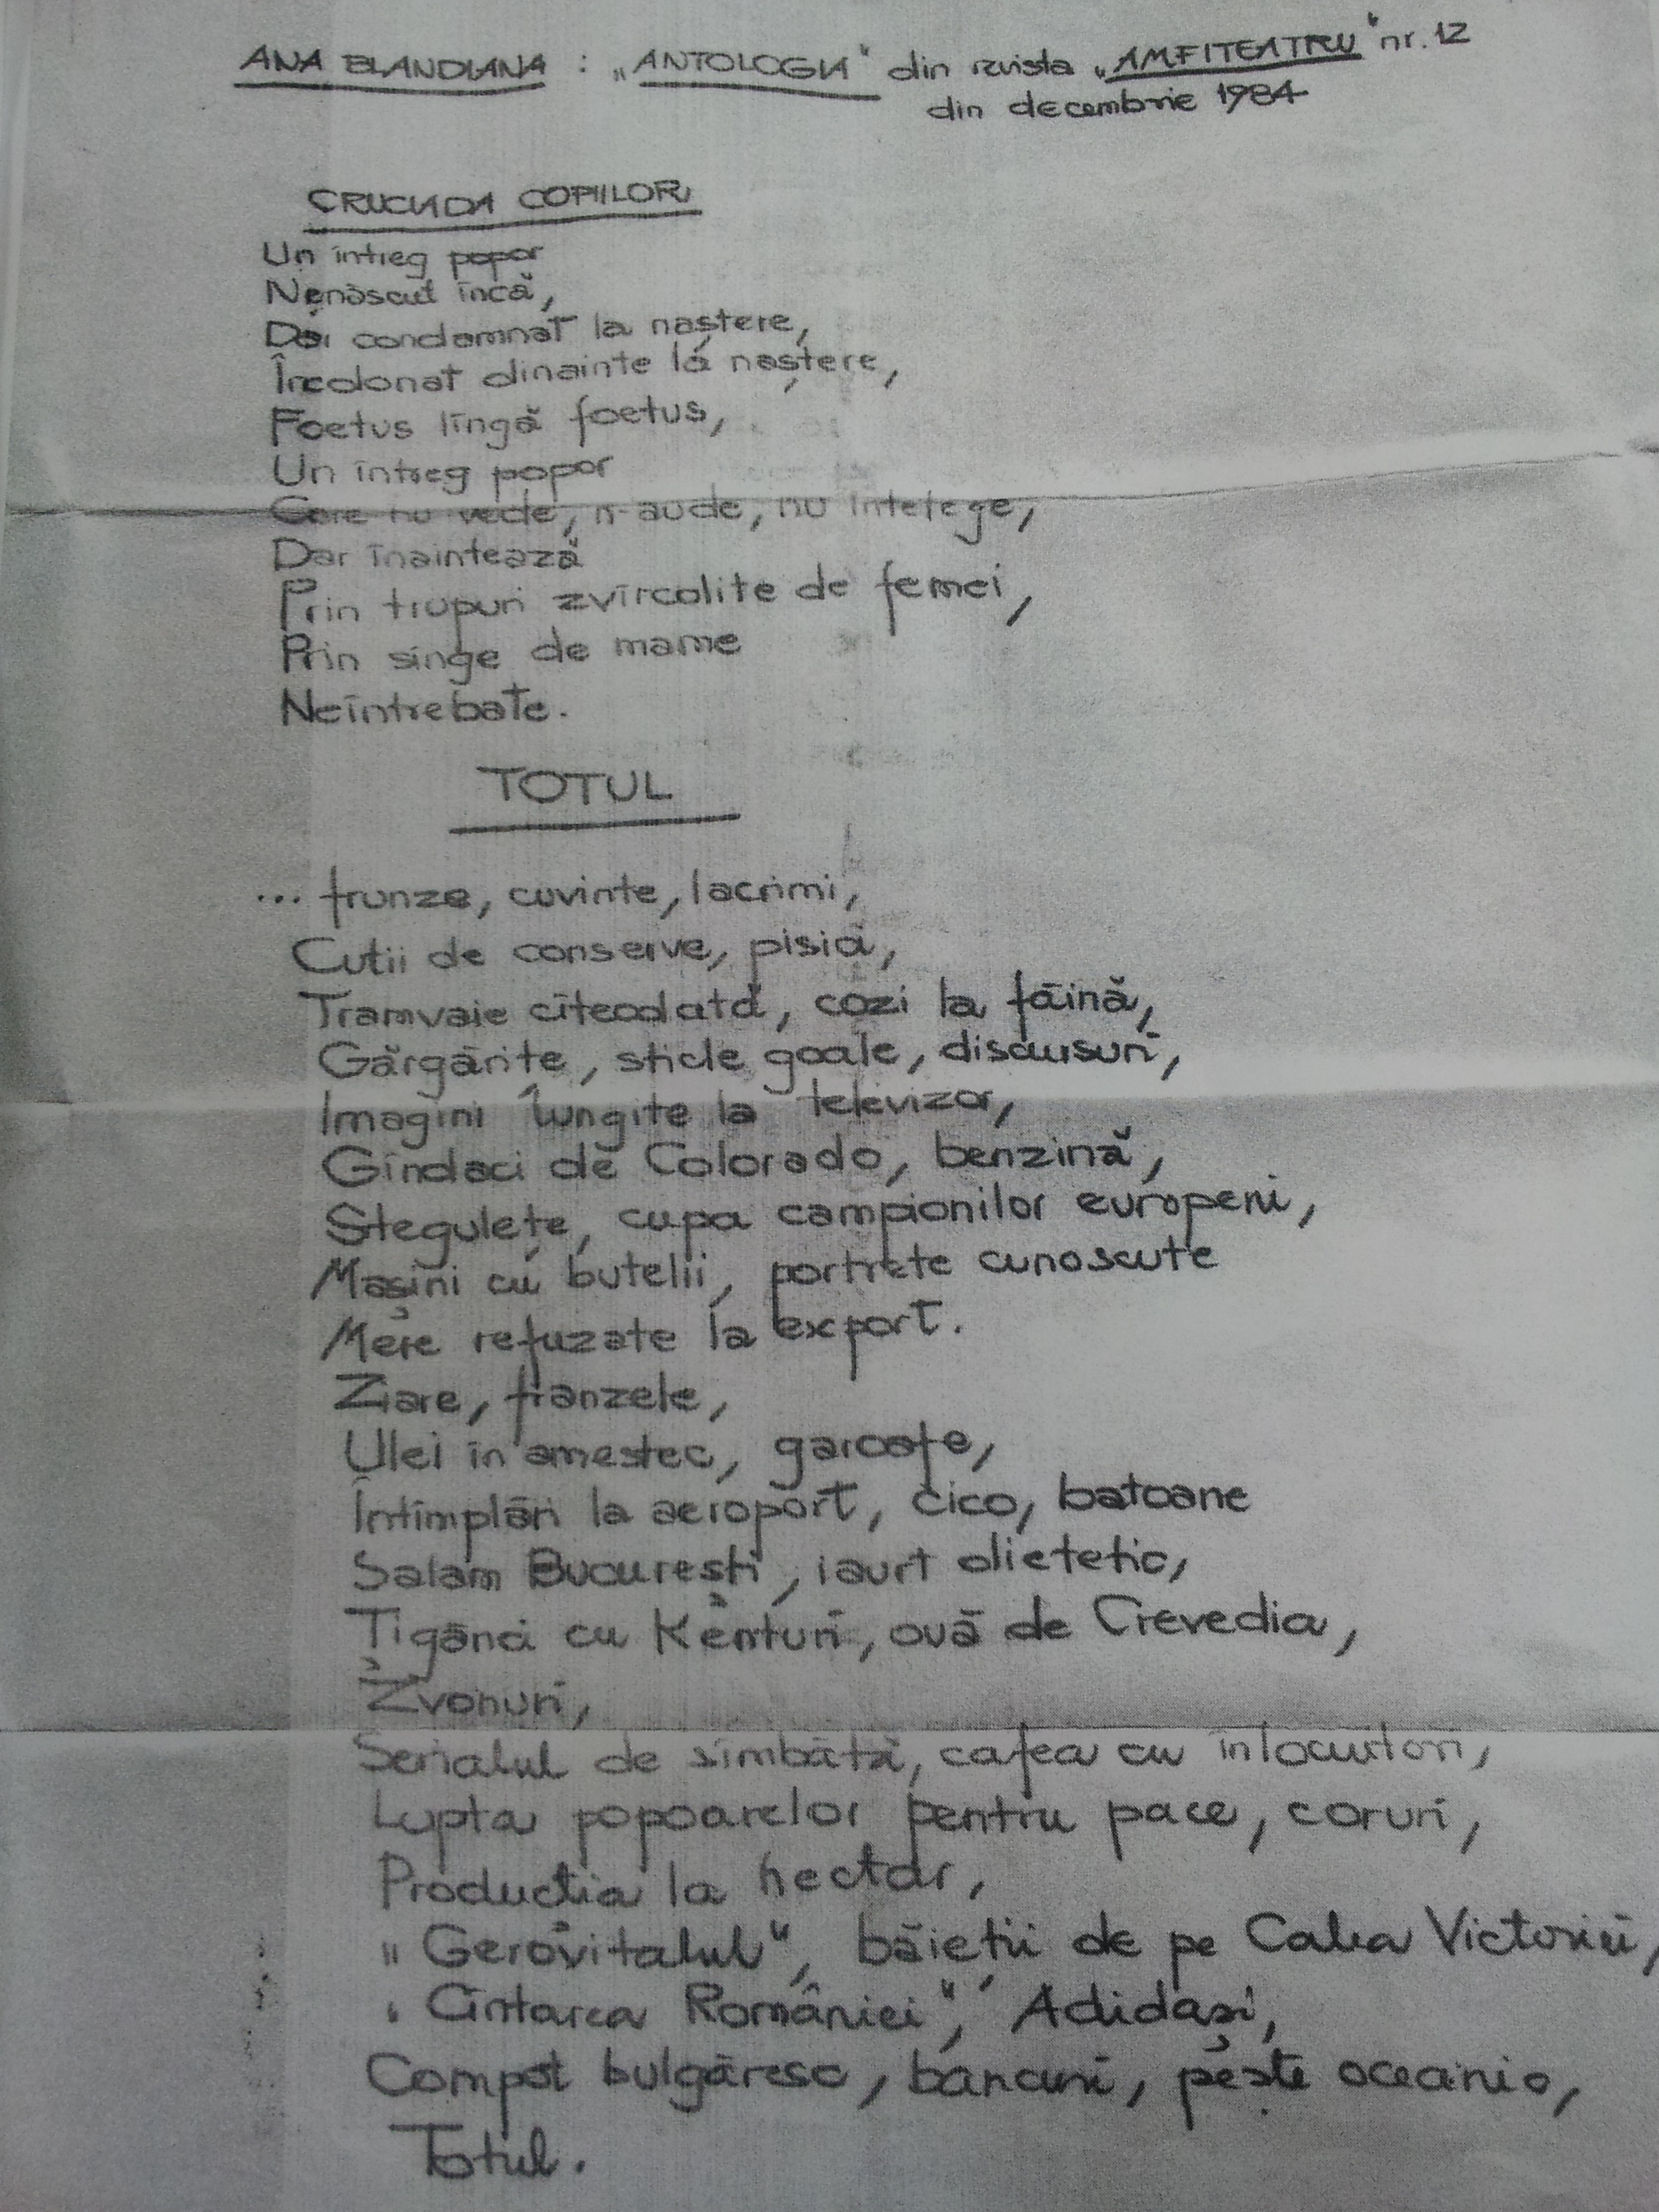 ANA BLANDIANA : „ANTOLOGIA“ din revista „AMFITEATRU“ nr. 12
din decembrie 1984
CRUCIADA COPIILOR
Un întreg popor
Nenăscut încă,
Dar condamnat la naștere,
Încolonat dinainte la naștere,
Foetus lîngă foetus,
Un întreg popor
Care nu vede, n-aude, nu înțelege,
Dar înaintează
Prin trupuri zvîrcolite de femei,
Prin sînge de mame
Neîntrebate.
TOTUL
... frunze, cuvinte, lacrimi,
Cutii de conserve, pisici,
Tramvaie cîteodată, cozi la făină,
Gărgărițe, sticle goale, discursuri,
Imagini lungite la televizor,
Gîndaci de Colorado, benzină,
Stegulețe, cupa campionilor europeni,
Mașini cu butelii, portrete cunoscute
Mere refuzate la export.
Ziare, franzele,
Ulei în amestec, garoafe,
Întîmplări la aeroport, cico, batoane
Salam București, iaurt dietetic,
Țigănci cu Kenturi, ouă de Crevedia,
Zvonuri,
Serialul de sîmbătă, cafea cu înlocuitori,
Lupta popoarelor pentru pace, coruri,
Producția la hectar,
„Gerovitalul“, băieții de pe Calea Victoriei,
„Cîntarea României“, Adidași,
Compot bulgăresc, bancuri, pește oceanic,
Totul.